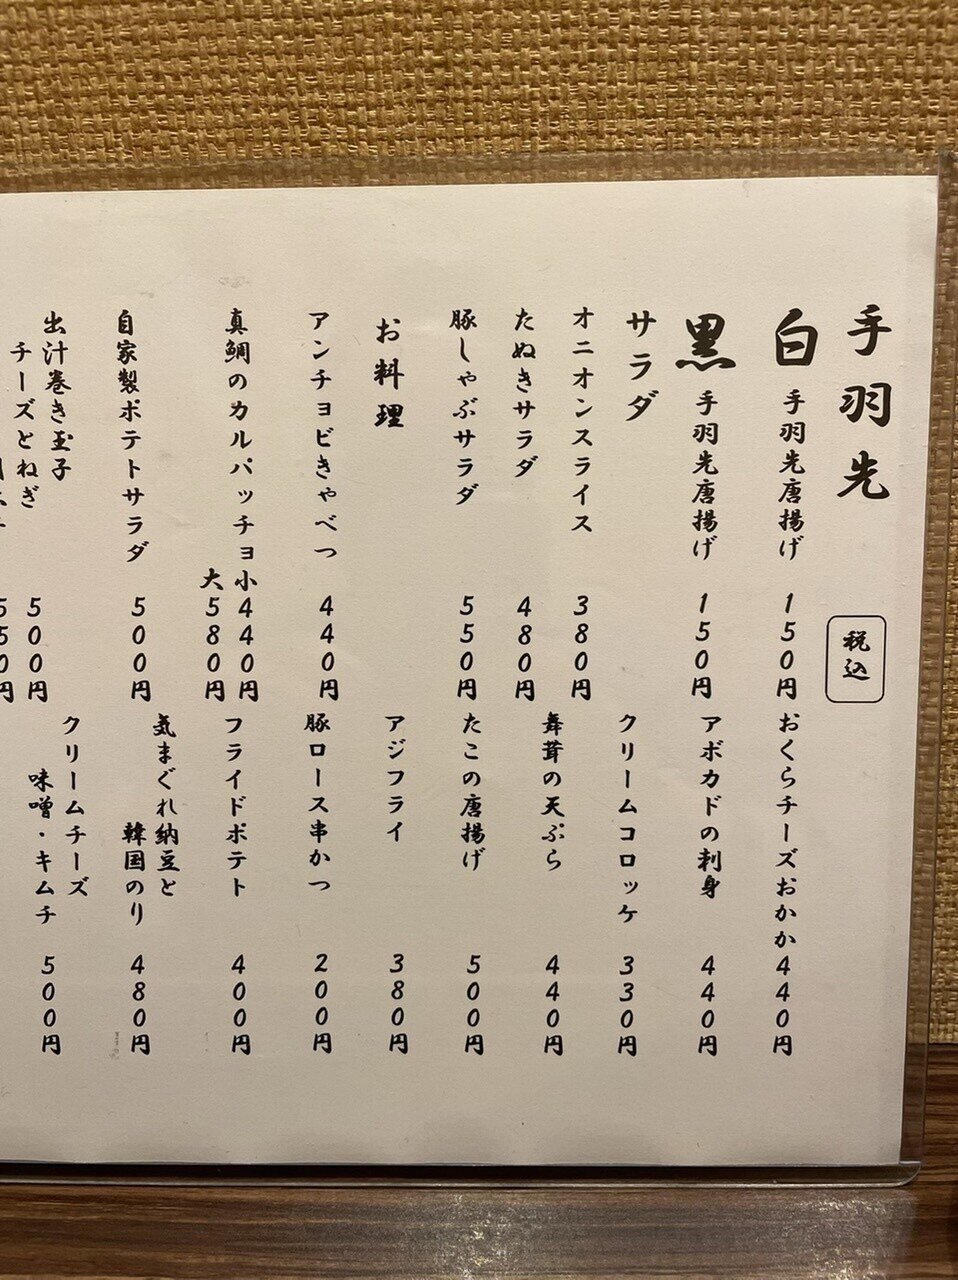 手羽先
税込
白 手羽先唐揚げ 150円
黒 手羽先唐揚げ 150円
サラダ
オニオンスライス 380円
たぬきサラダ 480円
豚しゃぶサラダ 550円
お料理
アンチョビきゃべつ 440円
真鯛のカルパッチョ 小 440円
大 580円
自家製ポテトサラダ 500円
出汁巻き玉子 500円
チーズとねぎ 550円
おくらチーズおかか 440円
アボカドの刺身 440円
クリームコロッケ 330円
舞茸の天ぷら 440円
たこの唐揚げ 500円
アジフライ 380円
豚ロース串かつ 200円
フライドポテト 400円
気まぐれ納豆と
韓国のり 480円
クリームチーズ
味噌・キムチ 500円